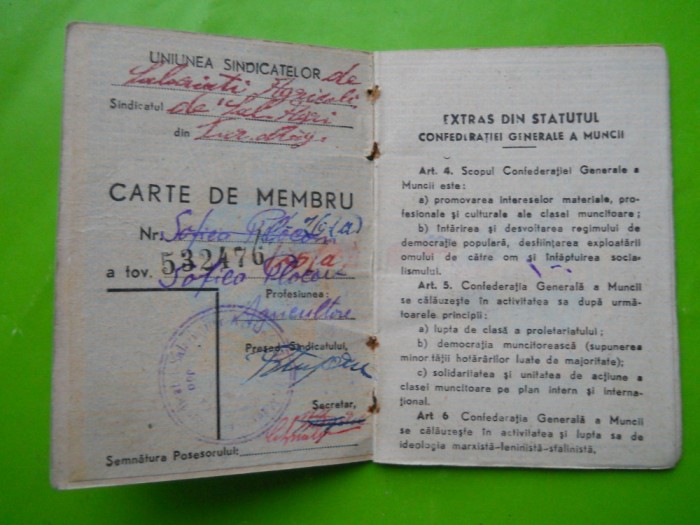 UNIUNEA SINDICATELOR de
Salariati Agricoli
Sindicatul de Sal. Agri
din
CARTE DE MEMBRU
Nr.
532476
a tov. Sofica
Profesiunea:
Agricultore
Președ. Sindicatului,
Secretar,
Semnătura Posesorului:
EXTRAS DIN STATUTUL
CONFEDERAȚIEI GENERALE A MUNCII
Art. 4. Scopul Confederației Generale a
Muncii este:
a) promovarea intereselor materiale, pro-
fesionale și culturale ale clasei muncitoare;
b) întărirea și desvoltarea regimului de
democrație populară, desființarea exploatării
omului de către om și înfăptuirea socia-
lismului.
Art. 5. Confederația Generală a Muncii
se călăuzește în activitatea sa după urmă-
toarele principii:
a) lupta de clasă a proletariatului;
b) democrația muncitorească (supunerea
minorității hotărârilor luate de majoritate);
c) solidaritatea și unitatea de acțiune a
clasei muncitoare pe plan intern și interna-
țional.
Art 6 Confederația Generală a Muncii
se călăuzește în activitatea și lupta sa de
ideologia marxistă-leninistă-stalinistă.